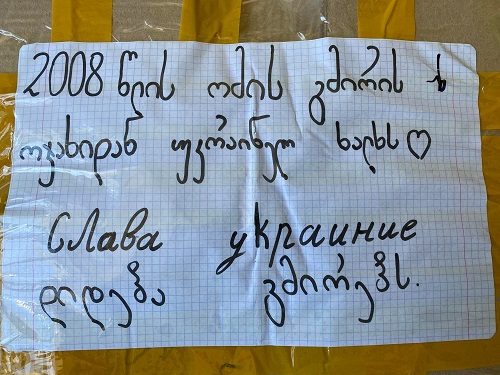 2008 წლის ომის გმირის
ოჯახიდან უკრაინელ ხალხს ♡
Слава украиние
დიდება გმირებს.